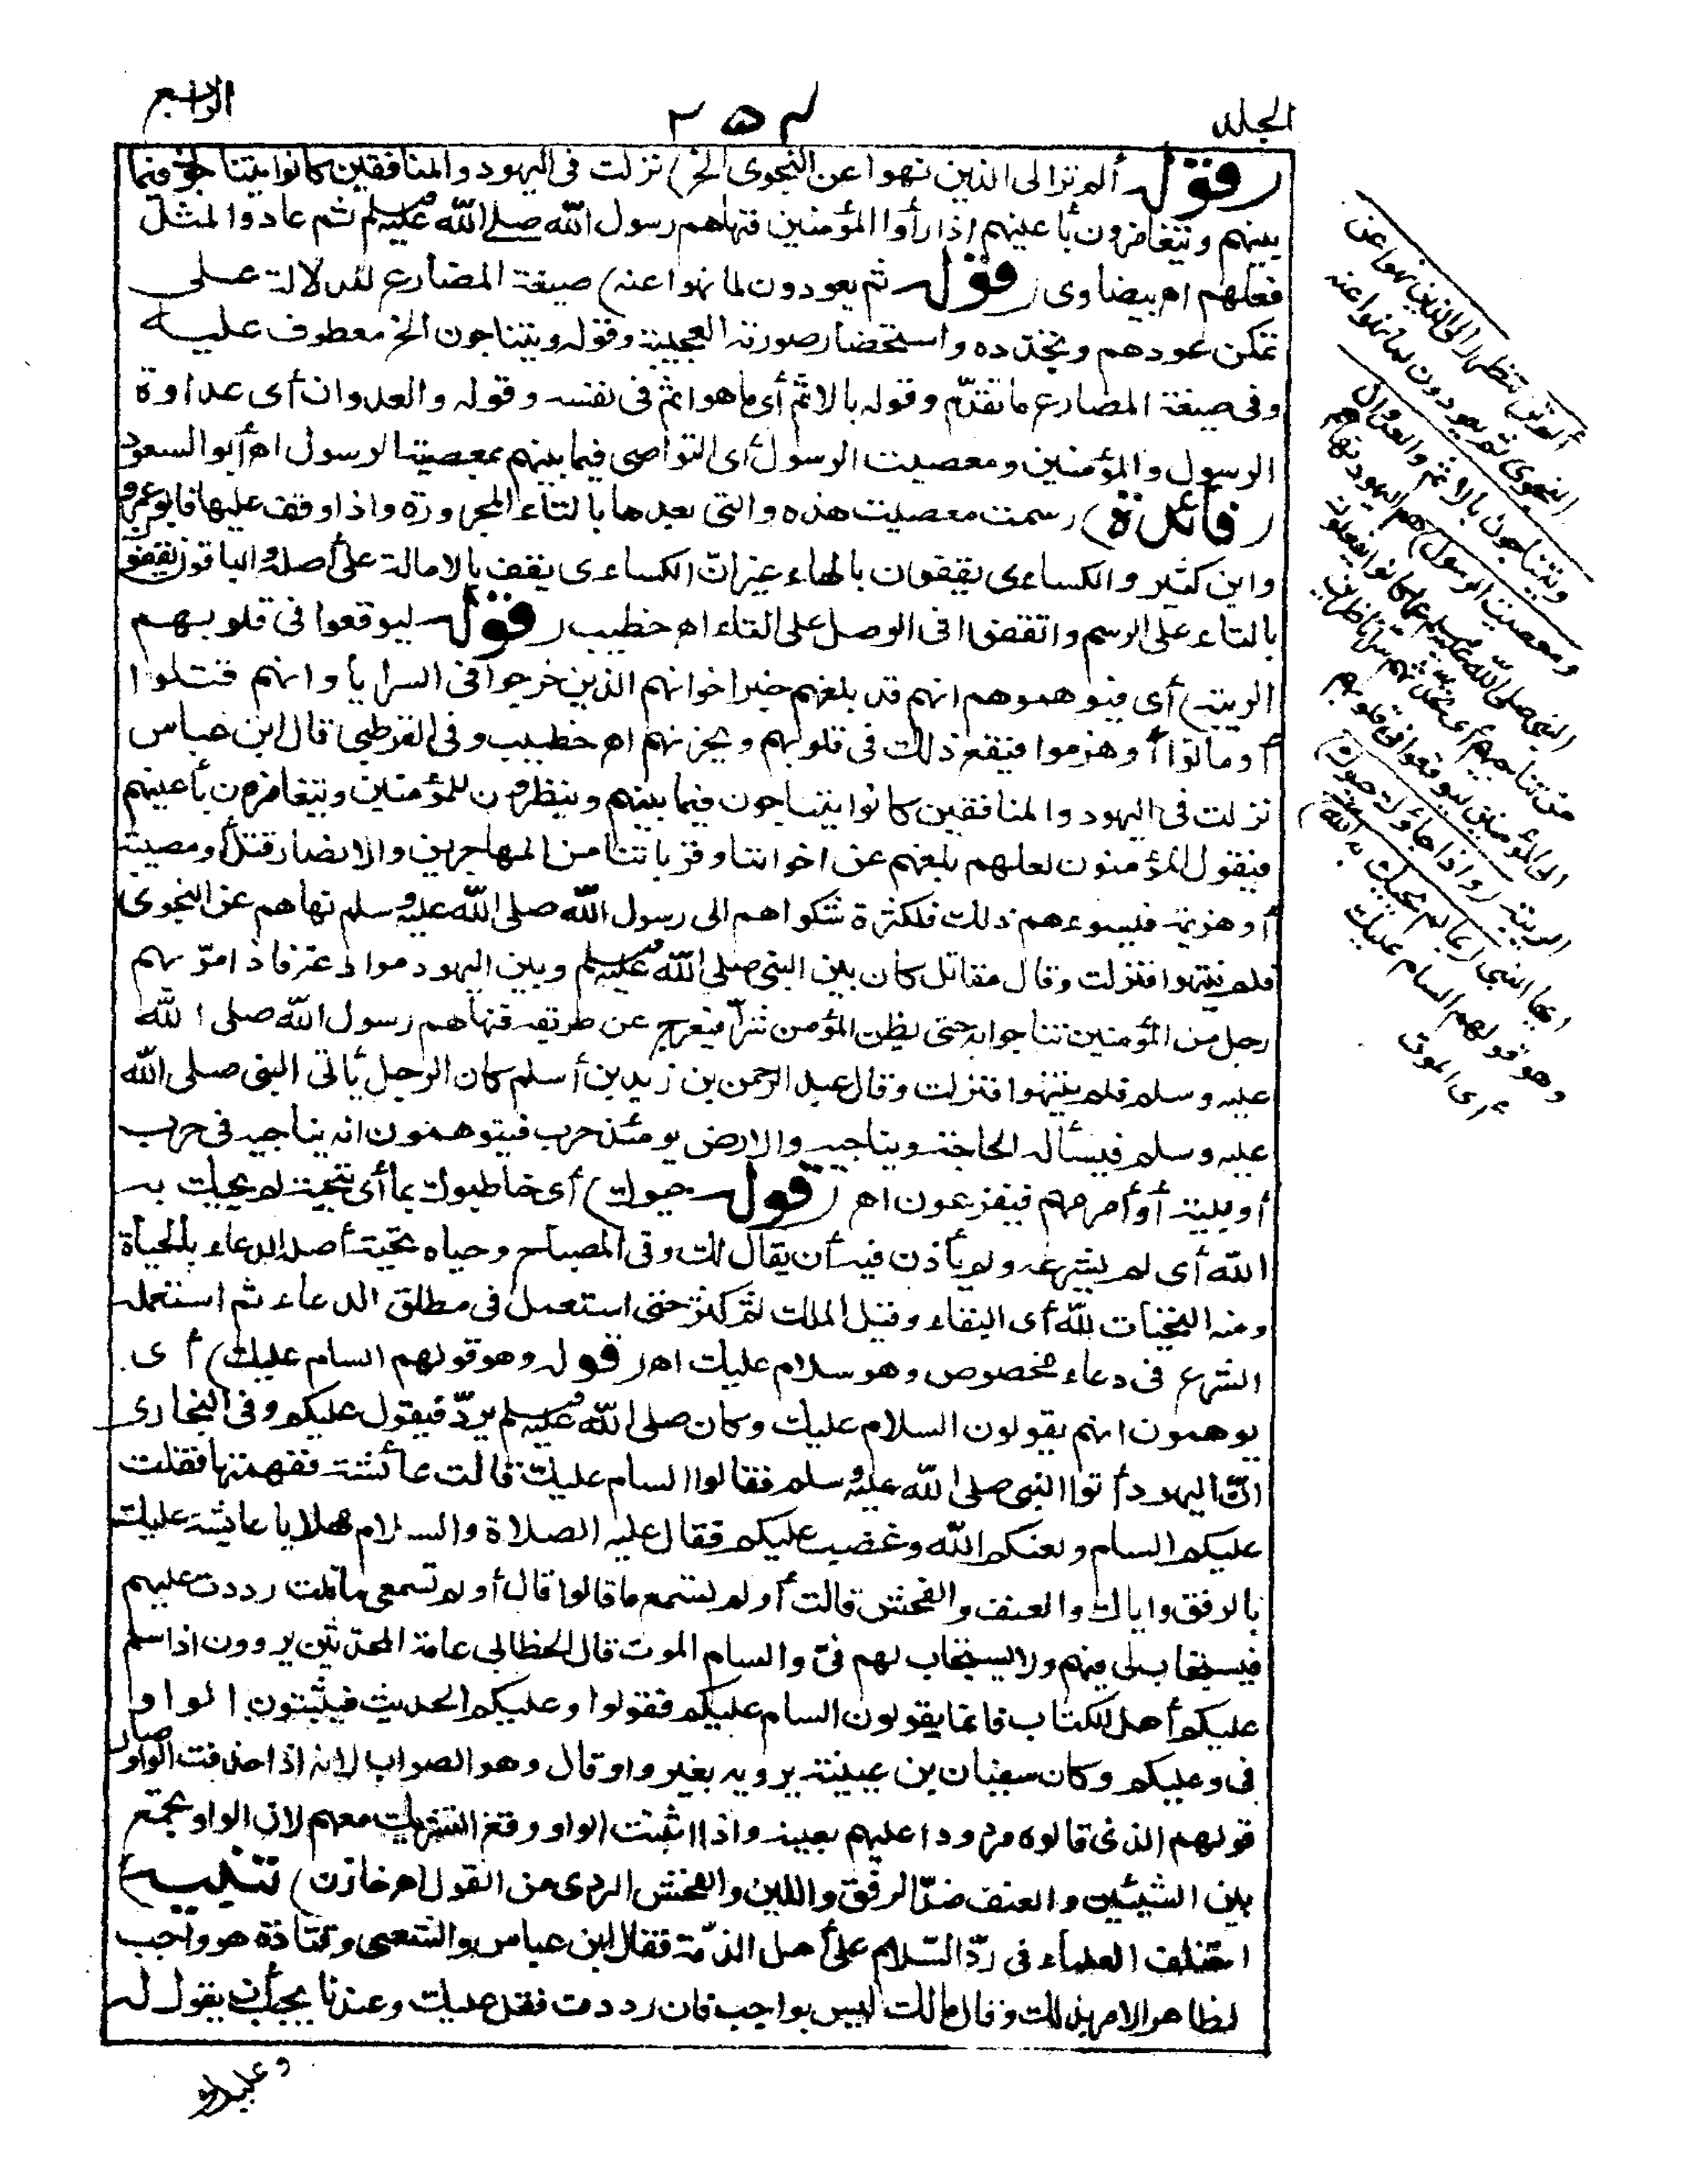 الجلد ٢٥٤ الرابع
(قوله ألم تر الى الذين نهوا عن النجوى الخ) نزلت فى اليهود والمنافقين كانوا يتناجون فيما
بينهم ويتغامزون بأعينهم إذا رأوا المؤمنين فنهاهم رسول الله صلى الله عليه وسلم ثم عادوا لمثل
فعلهم اه بيضاوى (قوله ثم يعودون لما نهوا عنه) صيغة المضارع للدلالة على
تمكن عودهم وتجدده واستحضار صورته العجيبة وقوله ويتناجون الخ معطوف عليه
وفى صيغة المضارع ما تقدّم وقوله بالاثم أى ما هو اثم فى نفسه وقوله والعدوان أى عداوة
الرسول والمؤمنين ومعصيت الرسول أى التواصى فيما بينهم بمعصية الرسول اه أبو السعود
(فائدة) رسمت معصيت هذه والتى بعدها بالتاء المجرورة واذا وقف عليها فابو عمرو
وابن كثير والكساءى يقفون بالهاء غير انّ الكساءى يقف بالامالة على أصله والباقون يقفون
بالتاء على الرسم واتفقوا فى الوصل على التاء اه خطيب (قوله ليوقعوا فى قلوبهم
الريبة) أى فيوهموهم انهم قد بلغهم خبر اخوانهم الذين خرجوا فى السرايا وانهم قتلوا
أو ماتوا أو هزموا فيقع ذلك فى قلوبهم ويحزنهم اه خطيب وفى القرطبى قال ابن عباس
نزلت فى اليهود والمنافقين كانوا يتناجون فيما بينهم وينظرون للمؤمنين ويتغامزون بأعينهم
فيقول المؤمنون لعلهم بلغهم عن اخواننا وقرباتنا من المهاجرين والانصار قتل أو مصيبة
أو هزيمة فيسوءهم ذلك فلكثرة شكواهم الى رسول الله صلى الله عليه وسلم نهاهم عن النجوى
فلم ينتهوا فنزلت وقال مقاتل كان بين النبى صلى الله عليه وسلم وبين اليهود موادعة فاذا مرّ بهم
رجل من المؤمنين تناجوا به حتى يظن المؤمن شرّا فيعرج عن طريقه فنهاهم رسول الله صلى الله
عليه وسلم فلم ينتهوا فنزلت وقال عبد الرحمن بن زيد بن أسلم كان الرجل يأتى النبى صلى الله
عليه وسلم فيسأله الحاجة ويناجيه والارض يومئذ حرب فيتوهمون انه يناجيه فى حرب
أو بلية أو أمر مهم فيفزعون اه (قوله حيوك) أى خاطبوك بما أى تحية لم يحيك به
الله أى لم يشرعه ولم يأذن فيه أن يقال لك وفى المصباح وحياه تحية أصله الدعاء بالحياة
ومنه التحيات لله أى البقاء وقيل الملك ثم كثر حتى استعمل فى مطلق الدعاء ثم استعمله
الشرع فى دعاء مخصوص وهو سلام عليك اه (قوله وهو قولهم السام عليك) أى
يوهمون انهم يقولون السلام عليك وكان صلى الله عليه وسلم يردّ فيقول عليكم وفى البخارى
انّ اليهود أتوا النبى صلى الله عليه وسلم فقالوا السام عليك قالت عائشة ففهمتها فقلت
عليكم السام ولعنكم الله وغضب عليكم فقال عليه الصلاة والسلام مهلا يا عايشة عليك
بالرفق واياك والعنف والفحش قالت أو لم تسمع ما قالوا قال أو لم تسمعى ما قلت رددت عليهم
فيستجاب لى فيهم ولا يستجاب لهم فىّ والسام الموت قال الخطابى عامة المحدّثين يروون اذا سلم
عليكم أهل الكتاب فانما يقولون السام عليكم فقولوا وعليكم الحديث فيثبتون الواو
فى وعليكم وكان سفيان بن عيينة يرويه بغير واو قال وهو الصواب لانه اذا حذفت الواو صار
قولهم الذى قالوه مردودا عليهم بعينه واذا اثبت الواو وقع التشريك معهم لان الواو تجمع
بين الشيئين والعنف ضدّ الرفق واللين والفحش الردى من القول اه خازن (تنبيه)
اختلف العلماء فى ردّ السّلام على أهل الذمّة فقال ابن عباس والشعبى وقتادة هو واجب
لظاهر الامر بذلك وقال مالك ليس بواجب فان رددت فقل عليك وعندنا يجب أن يقول له
وعليك
ألم تر) تنظر (الى الذين نهوا عن
النجوى ثم يعودون لما نهوا عنه
ويتناجون بالاثم والعدوان
ومعصيت الرسول) هم اليهود نهاهم
النبى صلى الله عليه وسلم عما كانوا يفعلون
من تناجيهم أى تحدثهم سرا ناظرين
الى المؤمنين ليوقعوا فى قلوبهم
الريبة (واذا جاؤك حيوك)
ايها النبى (بما لم يحيك به الله)
وهو قولهم السام عليك
أى الموت